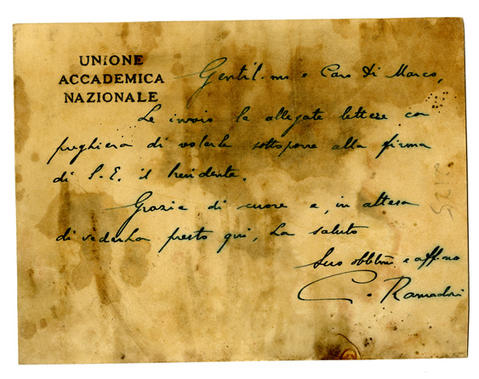 UNIONE
ACCADEMICA
NAZIONALE
Gentil.mo e Caro Di Marco,
Le invio le allegate lettere con
preghiera di volerle sottoporre alla firma
di S. E. il Presidente.
Grazie di cuore e, in attesa
di vederLa presto qui, La saluto
Suo obbl.mo e aff.mo
C. Ramadori